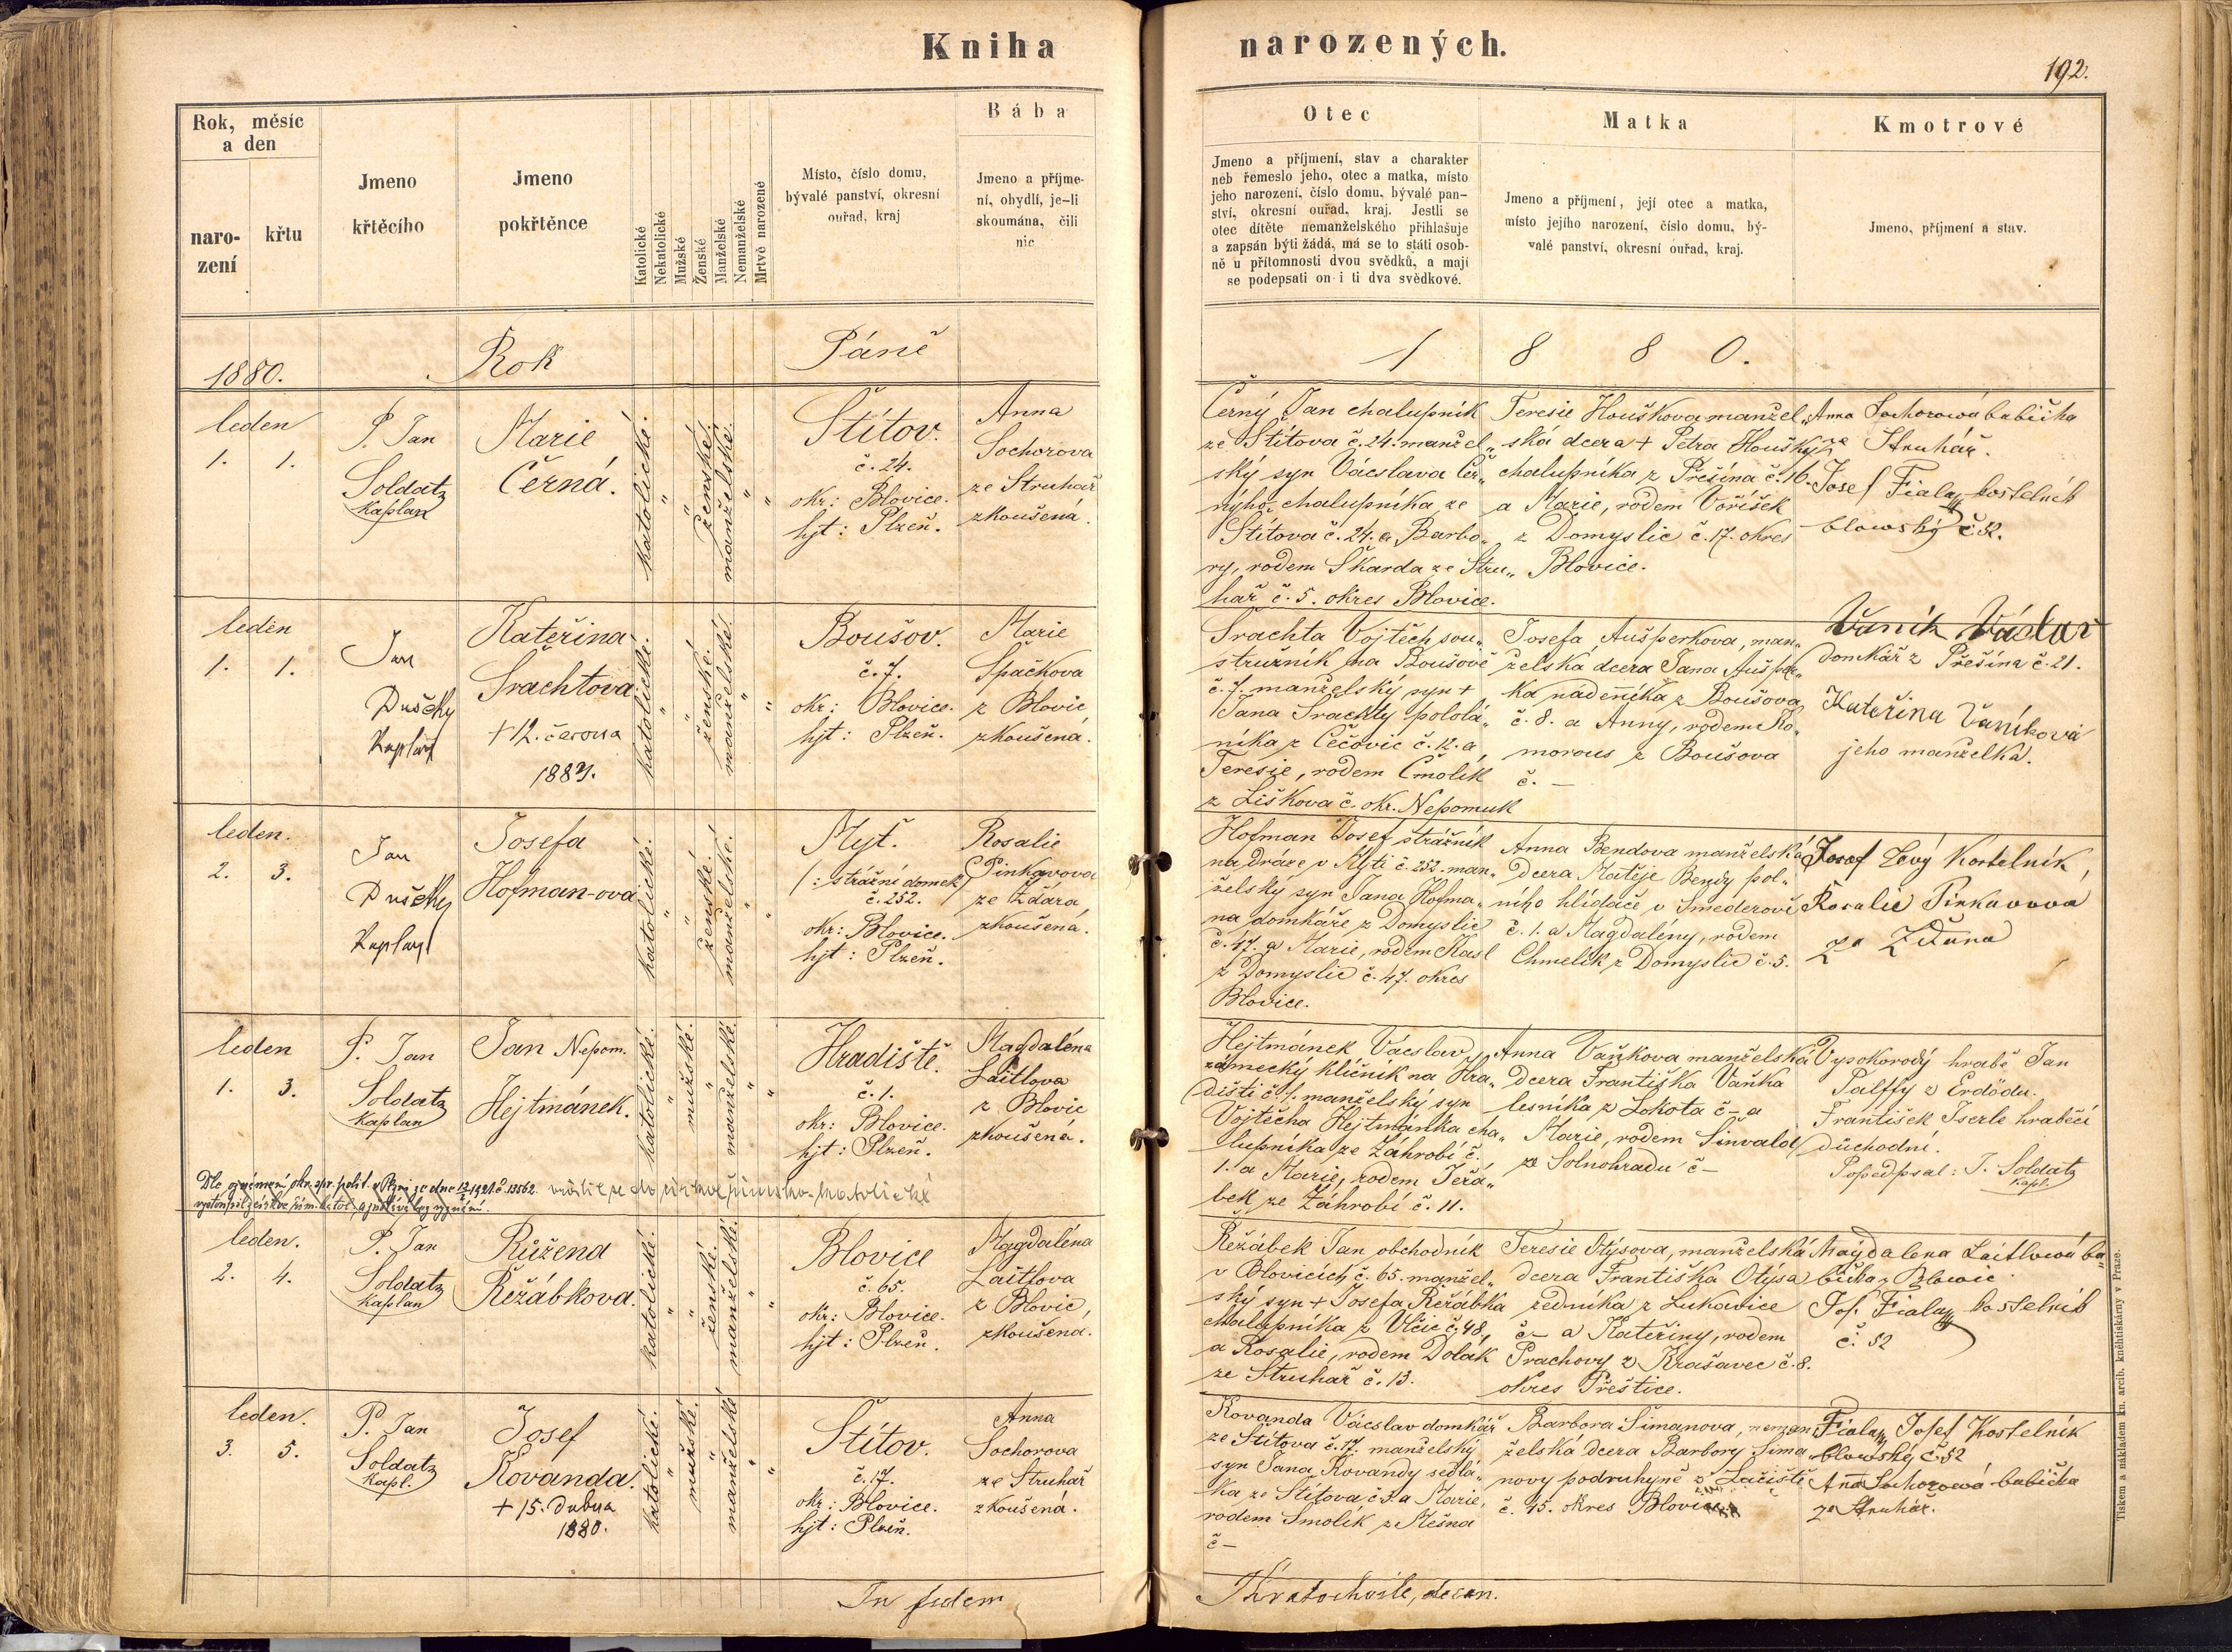 Kniha narozených.
192.
Rok, měsíc
a den
naro-
zení
křtu
Jmeno
křtěcího
Jmeno
pokřtěnce
Katolické
Nekatolické
Mužské
Ženské
Manželské
Nemanželské
Mrtvě narozené
Místo, číslo domu,
bývalé panství, okresní
ouřad, kraj
Bába
Jmeno a příjme-
ní, obydlí, je-li
skoumána, čili
nic
Otec
Jmeno a příjmení, stav a charakter
neb řemeslo jeho, otec a matka, místo
jeho narození, číslo domu, bývalé pan-
ství, okresní ouřad, kraj. Jestli se
otec dítěte nemanželského přihlašuje
a zapsán býti žádá, má se to státi osob-
ně u přítomnosti dvou svědků, a mají
se podepsati on i ti dva svědkové.
Matka
Jmeno a příjmení, její otec a matka,
místo jejího narození, číslo domu, bý-
valé panství, okresní ouřad, kraj.
Kmotrové
Jmeno, příjmení a stav.
1880. Rok Páně 1880.
leden
1. 1.
P. Jan
Soldatz
Kaplan
Marie
Černá.
katolické.
ženské.
manželské.
Štítov.
č. 24.
okr: Blovice.
hjt: Plzeň.
Anna
Sochorova
ze Struhař
zkoušená.
Černý Jan chalupník
ze Štítova č. 24. manžel„
ský syn Vácslava Čer„
nýho, chalupníka ze
Štítova č. 24. a Barbo„
ry, rodem Škarda ze Stru„
hař č. 5. okres Blovice.
Teresie Houškova manžel„
ská dcera + Petra Houšky
chalupníka z Přešina č. 16.
a Marie, rodem Voříšek
z Domyslic č. 17. okres
Blovice.
Anna Sochorowá babička
ze Struhář.
Josef Fiala kostelník
blowský č 52.
leden
1. 1.
Jan
Dušek
Kaplan
Kateřina
Srachtova
+ 12. června
1883.
katolické.
ženské.
manželské.
Boušov.
č. 7.
okr: Blovice.
hjt: Plzeň.
Marie
Spačkova
z Blovic
zkoušená.
Srachta Vojtěch sou„
stružník na Boušově
č. 7. manželský syn +
Jana Srachty pololá„
níka z Čečovic č. 12. a
Teresie, rodem Čmolík
z Liškova č. okr. Nepomuk
Josefa Aušperkova, man„
želská dcera Jana Aušper„
ka nadeníka z Boušova
č. 8. a Anny, rodem Ko„
morous z Boušova
č. —
Vaník Václav
domkář z Přešína č. 21.
Kateřina Vaníková
jeho manželka.
leden.
2. 3.
Jan
Dušek
Kaplan
Josefa
Hofman-ova
katolické.
ženské.
manželské.
Myť.
/: strážní domek
č. 252.
okr: Blovice.
hjt: Plzeň.
Rosalie
Pinkavova
ze Ždára,
zkoušena.
Hofman Josef strážník
na dráze v Mýti č. 252. man„
želský syn Jana Hofma„
na domkáře z Domyslic
č. 47. a Marie, rodem Kasl
z Domyslic č. 47. okres
Blovice.
Anna Bendova manželská
dcera Matěje Bendy pol„
ního hlídače v Směderově
č. 1. a Magdaleny, rodem
Chmelík z Domyslic č. 5.
Josef Levý Kostelník,
Rosalie Pinkavova
Ze Ždára
leden
1. 3.
P. Jan
Soldatz
Kaplan
Jan Nepom.
Hejtmánek.
katolické.
mužské.
manželské.
Hradiště.
č. 1.
okr: Blovice.
hjt: Plzeň.
Magdaléna
Laitlova
z Blovic
zkoušená.
Hejtmánek Vácslav
zámecký klíčník na Hra„
dišti č. 1. manželský syn
Vojtěcha Hejtmánka cha„
lupníka ze Záhrobí č.
1. a Marie, rodem Jeřá„
bek ze Záhrobí č. 11.
Anna Vaňkova manželská
dcera Františka Vaňka
lesníka z Lokota č — a
Marie, rodem Sinvald
ze Solnohradu č —
Vysokorodý hrabě Jan
Palffy z Erdödu.
František Iserle hraběcí
důchodní.
Popedpsal: J. Soldatz
kapl.
Dle oznámení okr. spr. polit. v Plzni ze dne 12/2 1921. č. 13562.
vystoupil z církve řím. katol. a zůstává bez vyznání.
vrátil se do církve římsko-katolické
leden.
2. 4.
P. Jan
Soldatz
Kaplan
Růžena
Řežábkova.
katolické.
ženské.
manželské.
Blovice
č. 65.
okr: Blovice.
hjt: Plzeň.
Magdaléna
Laitlova
z Blovic,
zkoušena.
Řežábek Jan obchodník
v Blovicích č. 65. manžel„
ský syn + Josefa Řežábka
chalupníka z Vlčic č. 48,
a Rosalie, rodem Dolák
ze Struhař č. 13.
Teresie Otýsova, manželská
dcera Františka Otýsa
zedníka z Lukavice
č — a Kateřiny, rodem
Prachovy z Krašavec č. 8.
okres Přeštice.
Magdalena Laitlowá ba„
bička z Blowic
Jos. Fiala kostelník
č. 52
leden.
3. 5.
P. Jan
Soldatz
Kapl.
Josef
Kovanda.
+ 15. Dubna
1880.
katolické.
mužské.
manželské
Štítov.
č. 17.
okr: Blovice.
hjt: Plzeň.
Anna
Sochorova
ze Struhař
zkoušená.
Kovanda Vácslav domkář
ze Štítova č. 17. manželský
syn Jana Kovandy sedlá„
ka ze Štítova č 3. a Marie,
rodem Smolík z Mešna
č —
Barbora Šimanova, neman
želská dcera Barbory Šima
novy podruhyně z Lažiště
č. 15. okres Blovice.
Fiala Josef Kostelník
blowský č. 52
Anna Sochorowá babička
ze Struhář.
In fidem
Kratochvíle, decan.
Tiskem a nákladem kn. arcib. kněhtiskárny v Praze.